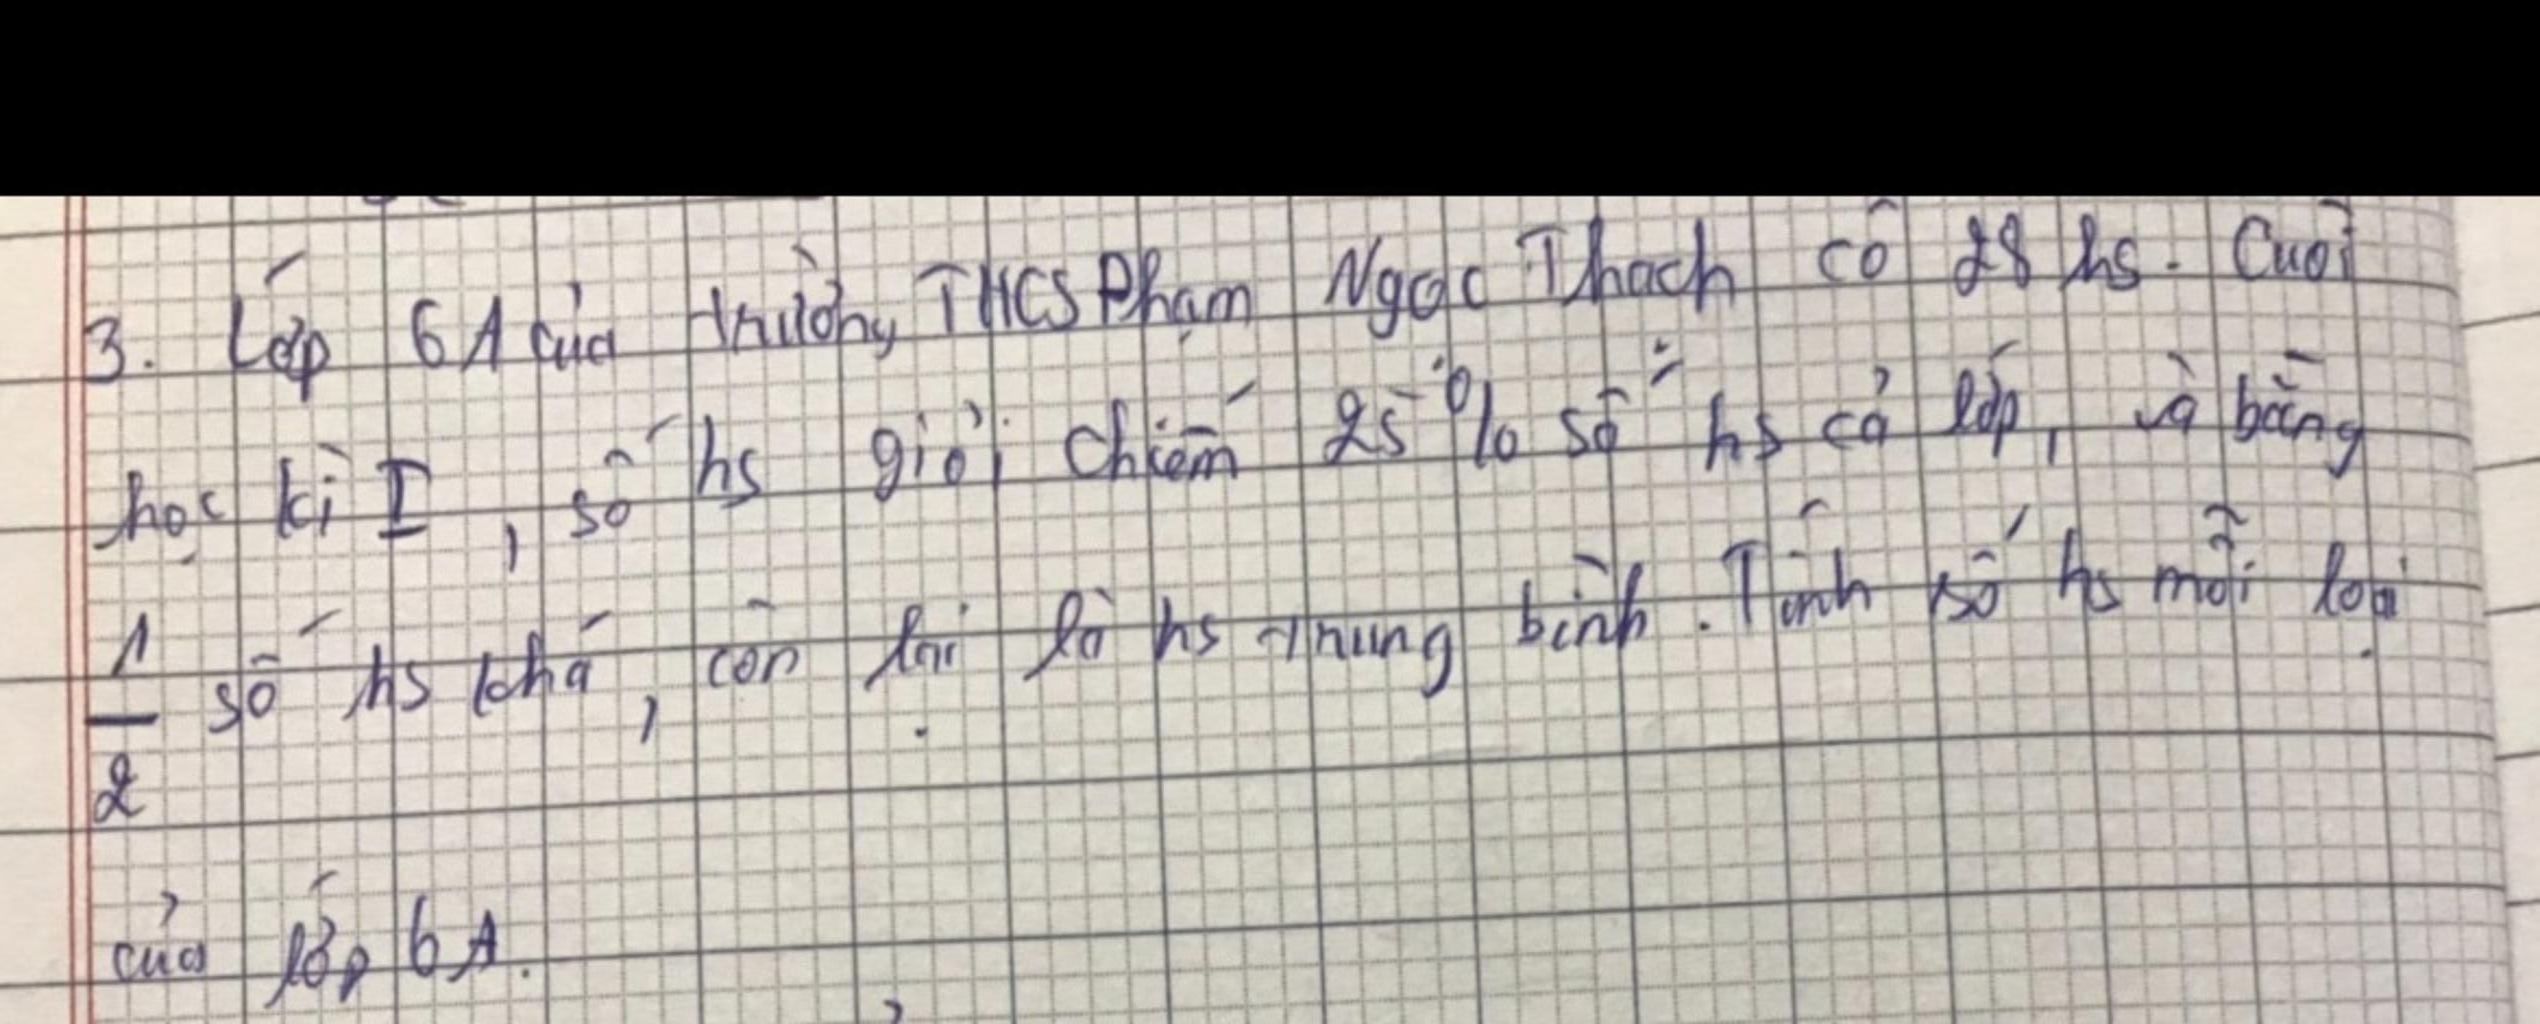 3. Lớp 6A của trường THCS Phạm Ngọc Thạch có 28 hs. Cuối
học kì I, số hs giỏi chiếm 25% số hs cả lớp, và bằng
1/2 số hs khá, còn lại là hs trung bình. Tính số hs mỗi loại
của lớp 6A.